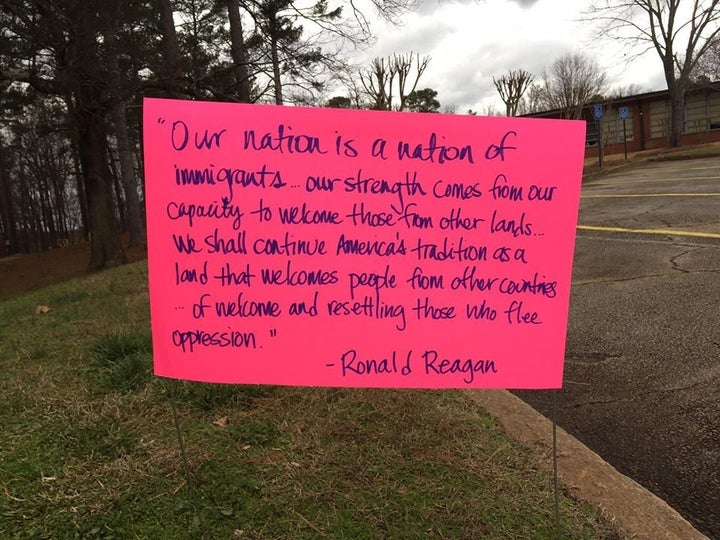 "Our nation is a nation of
immigrants... our strength comes from our
capacity to welcome those from other lands...
We shall continue America's tradition as a
land that welcomes people from other countries
... of welcome and resettling those who flee
oppression."
- Ronald Reagan